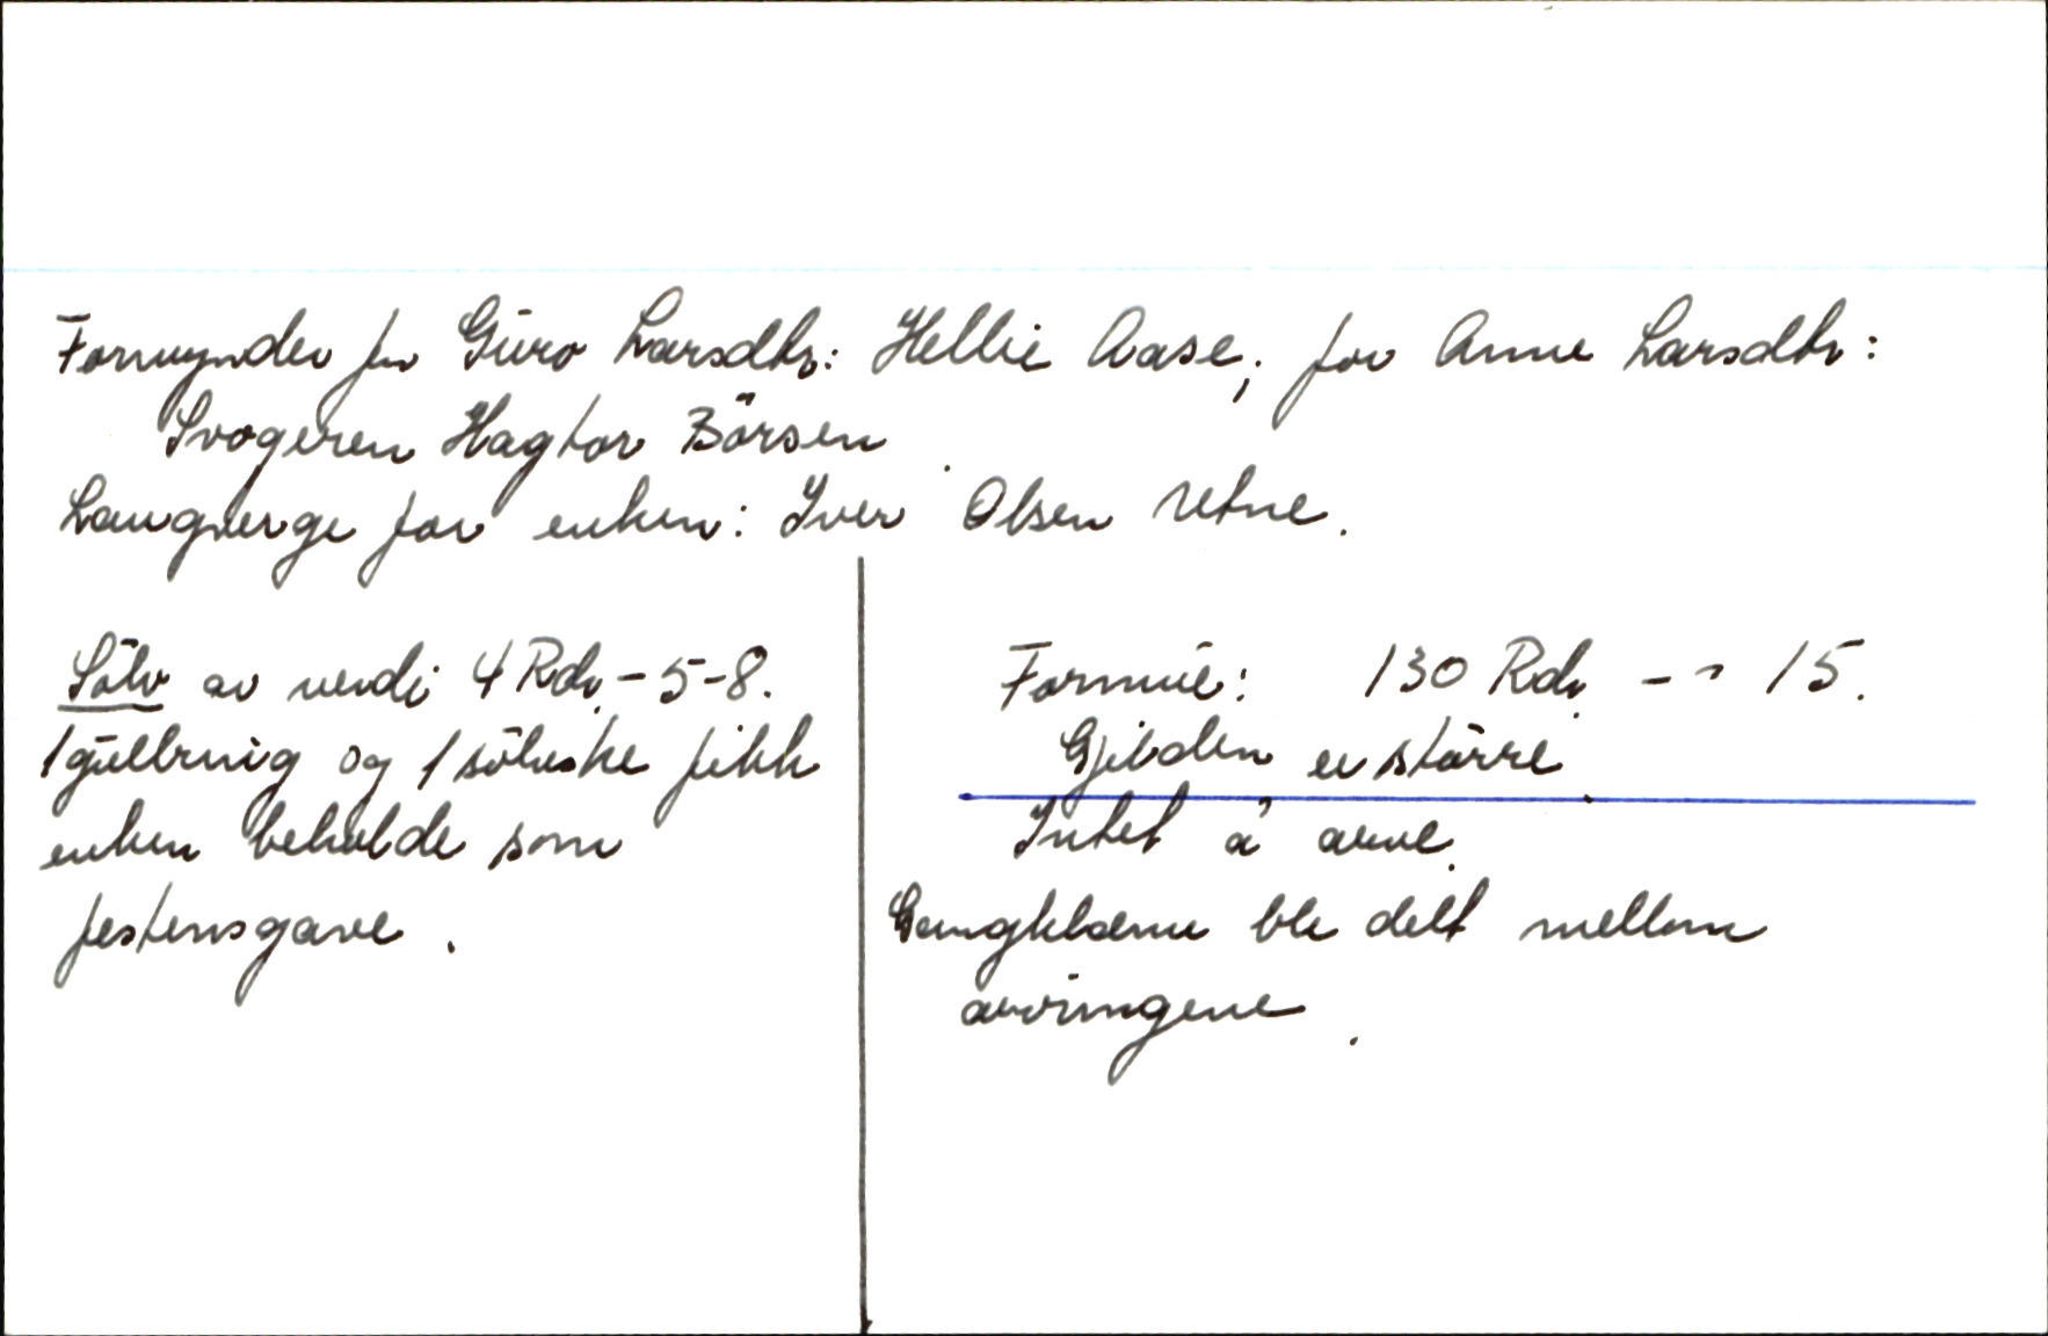 Formynder for Guro Larsdtr: Hellie Aase; for Anne Larsdtr:
Svogeren Hagtor Börsen.
Laugverge for enken: Iver Olsen Utne.
Sölv av verdi 4 Rdr. - 5 - 8.
1 gullring og 1 sölvske fikk
enken beholde som
festensgave.
Formue: 130 Rdr. - - 15.
Gjelden er större.
Intet å arve.
Gangklærne ble delt mellom
arvingene.